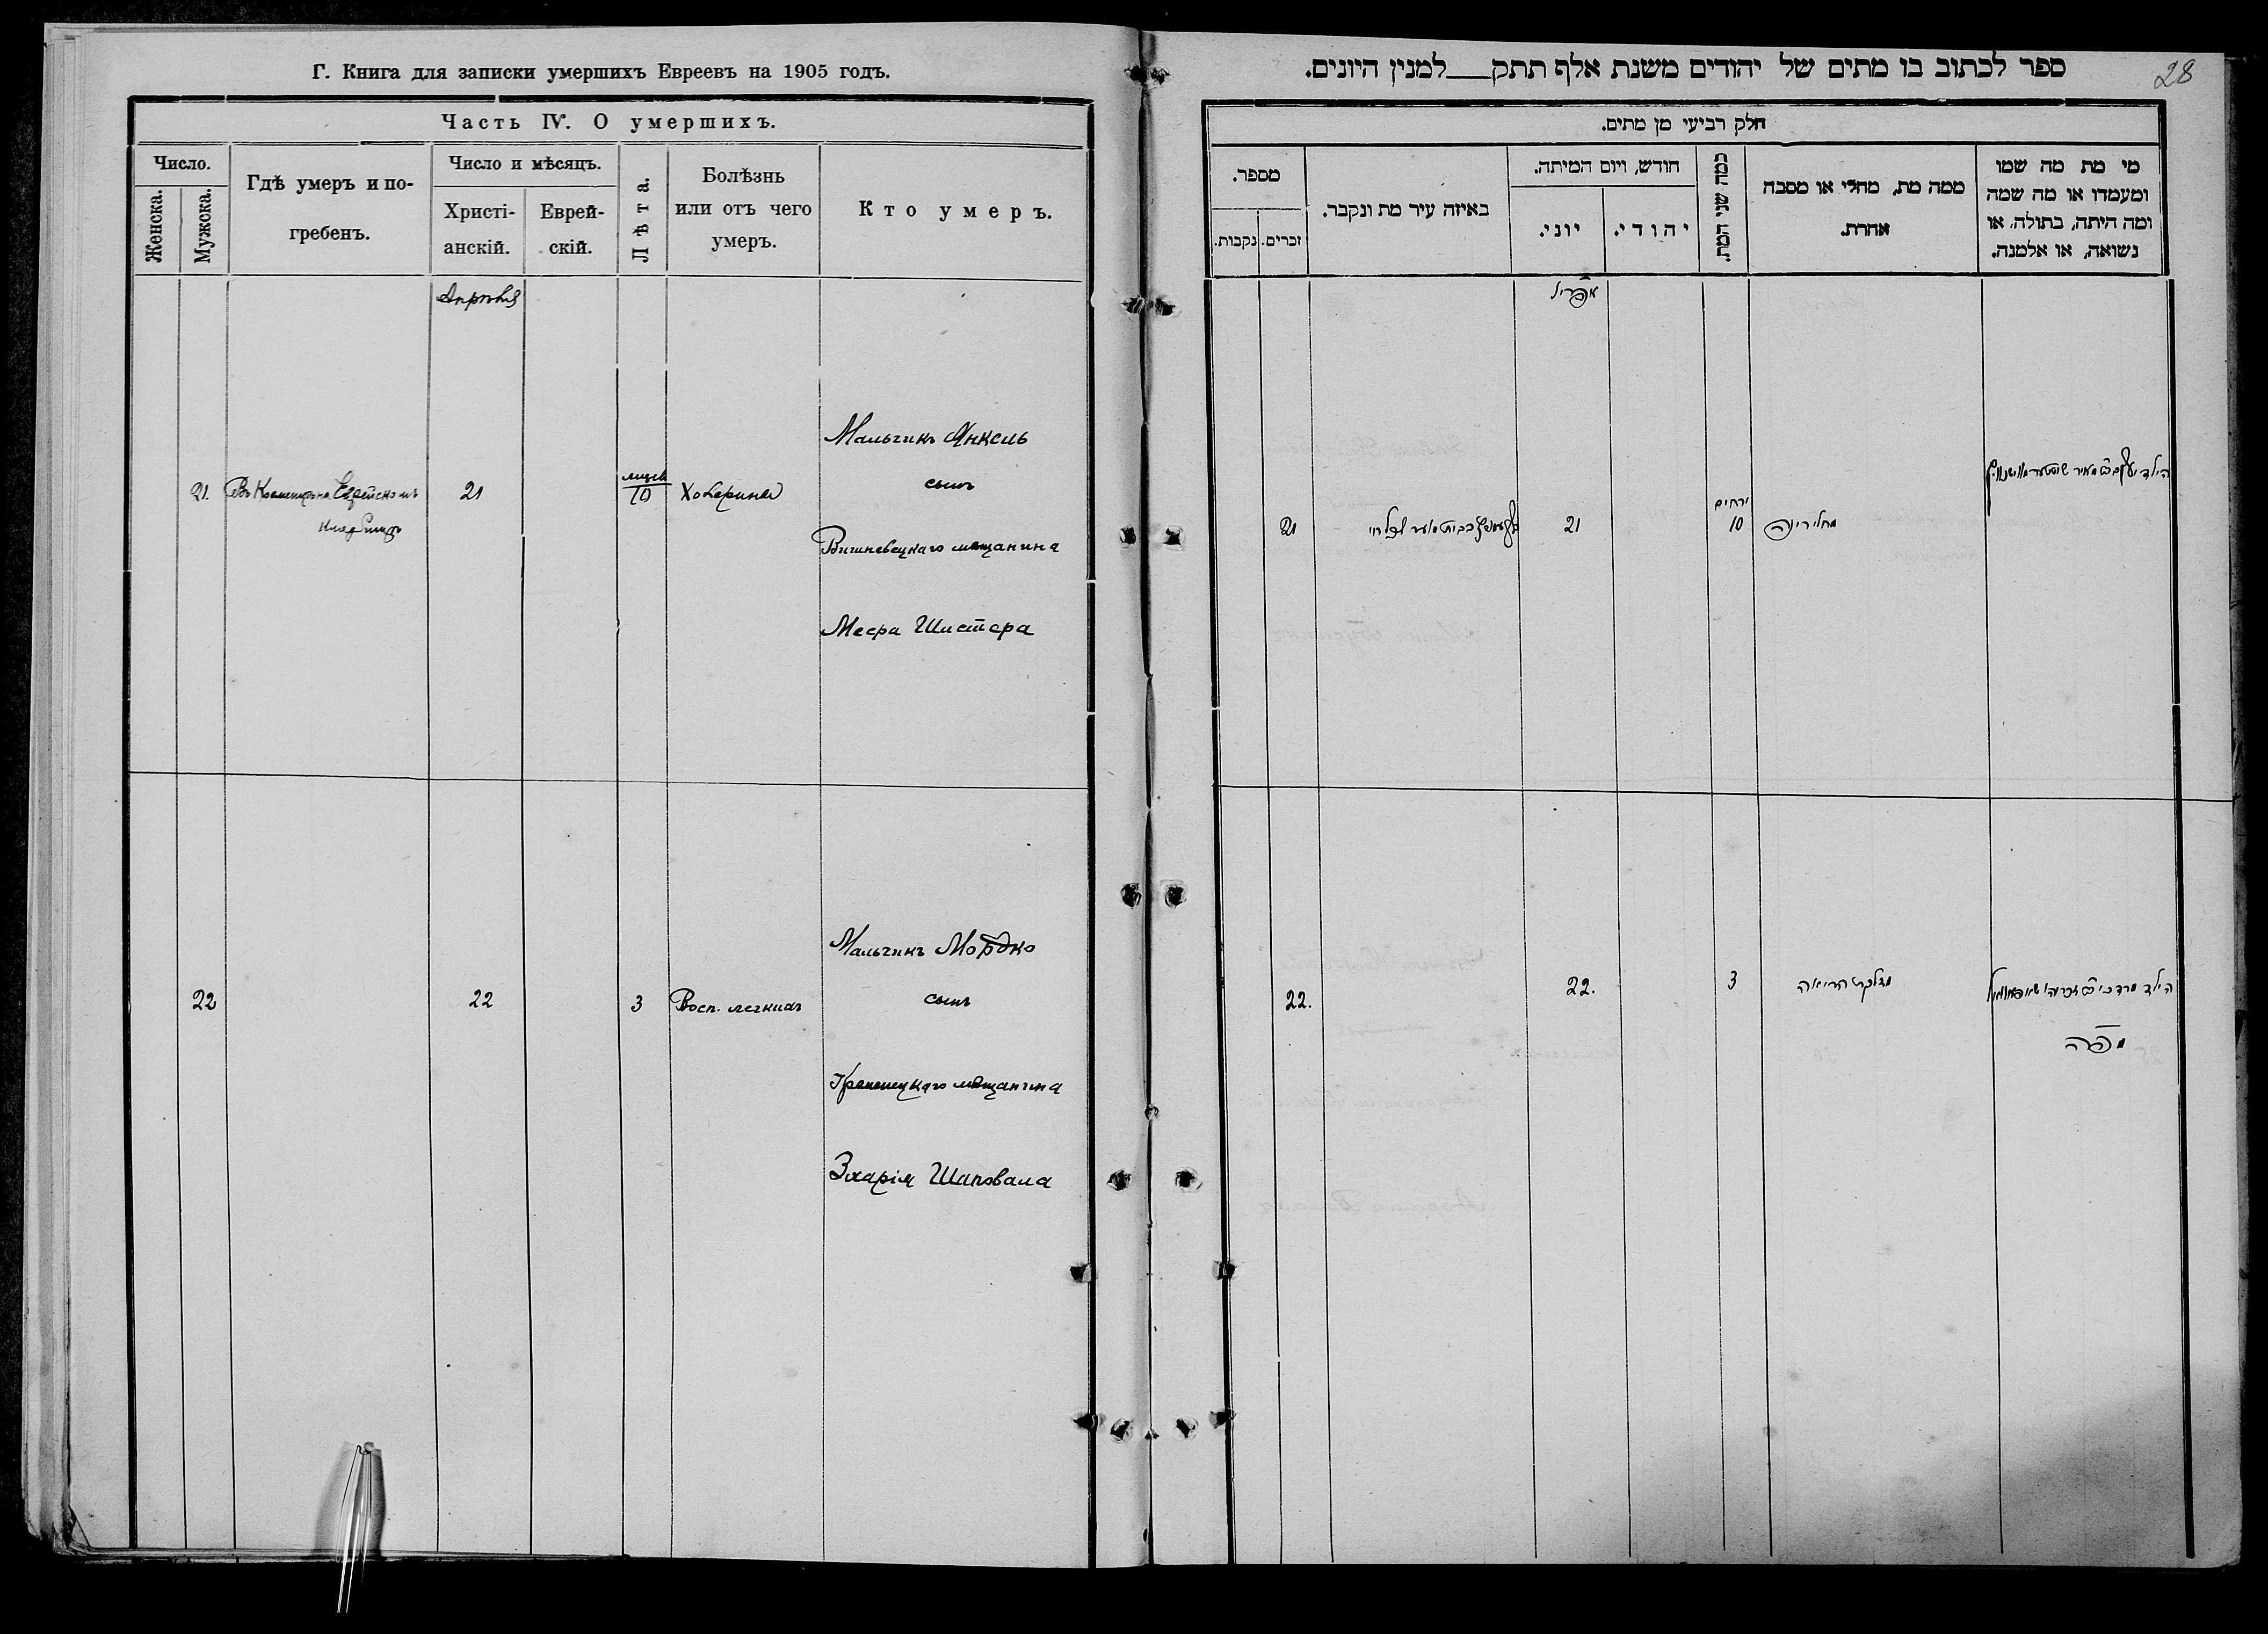 Г. Книга для записки умершихъ Евреевъ на 1905 годъ.
Часть IV. О умершихъ.
Число.
Женска.
Мужска.
Гдѣ умеръ и по-
гребенъ.
Число и мѣсяцъ.
Христі-
анскій.
Еврей-
скій.
Лѣта.
Болѣзнь
или отъ чего
умеръ.
Кто умеръ.
Апрѣля
21
Въ Кременцѣ на Еврейскомъ
кладбищѣ
21
10
Мальчикъ Янкель
сынъ
Вишневецкаго мѣщанина
Меера Шистера
22
22
3
Восп. легкихъ
Мальчикъ Мордко
сынъ
Кременецкаго мѣщанина
Зхарія Шаповала
28
ספר לכתוב בו מתים של יהודים משנת אלף תתק___למנין היונים.
חלק רביעי מן מתים.
מספר.
נקבות.
זכרים.
באיזה עיר מת ונקבר.
חודש, ויום המיתה.
יוני.
יהודי.
כמה שני המת.
ממה מת, מחלי או מסבה
אחרת.
מי מת מה שמו
ומעמדו או מה שמה
ומה היתה, בתולה, או
נשואה, או אלמנה.
אפריל
21
21
ירחים
10
22.
22.
3
מדלקת הריאה
הילד מרדכי